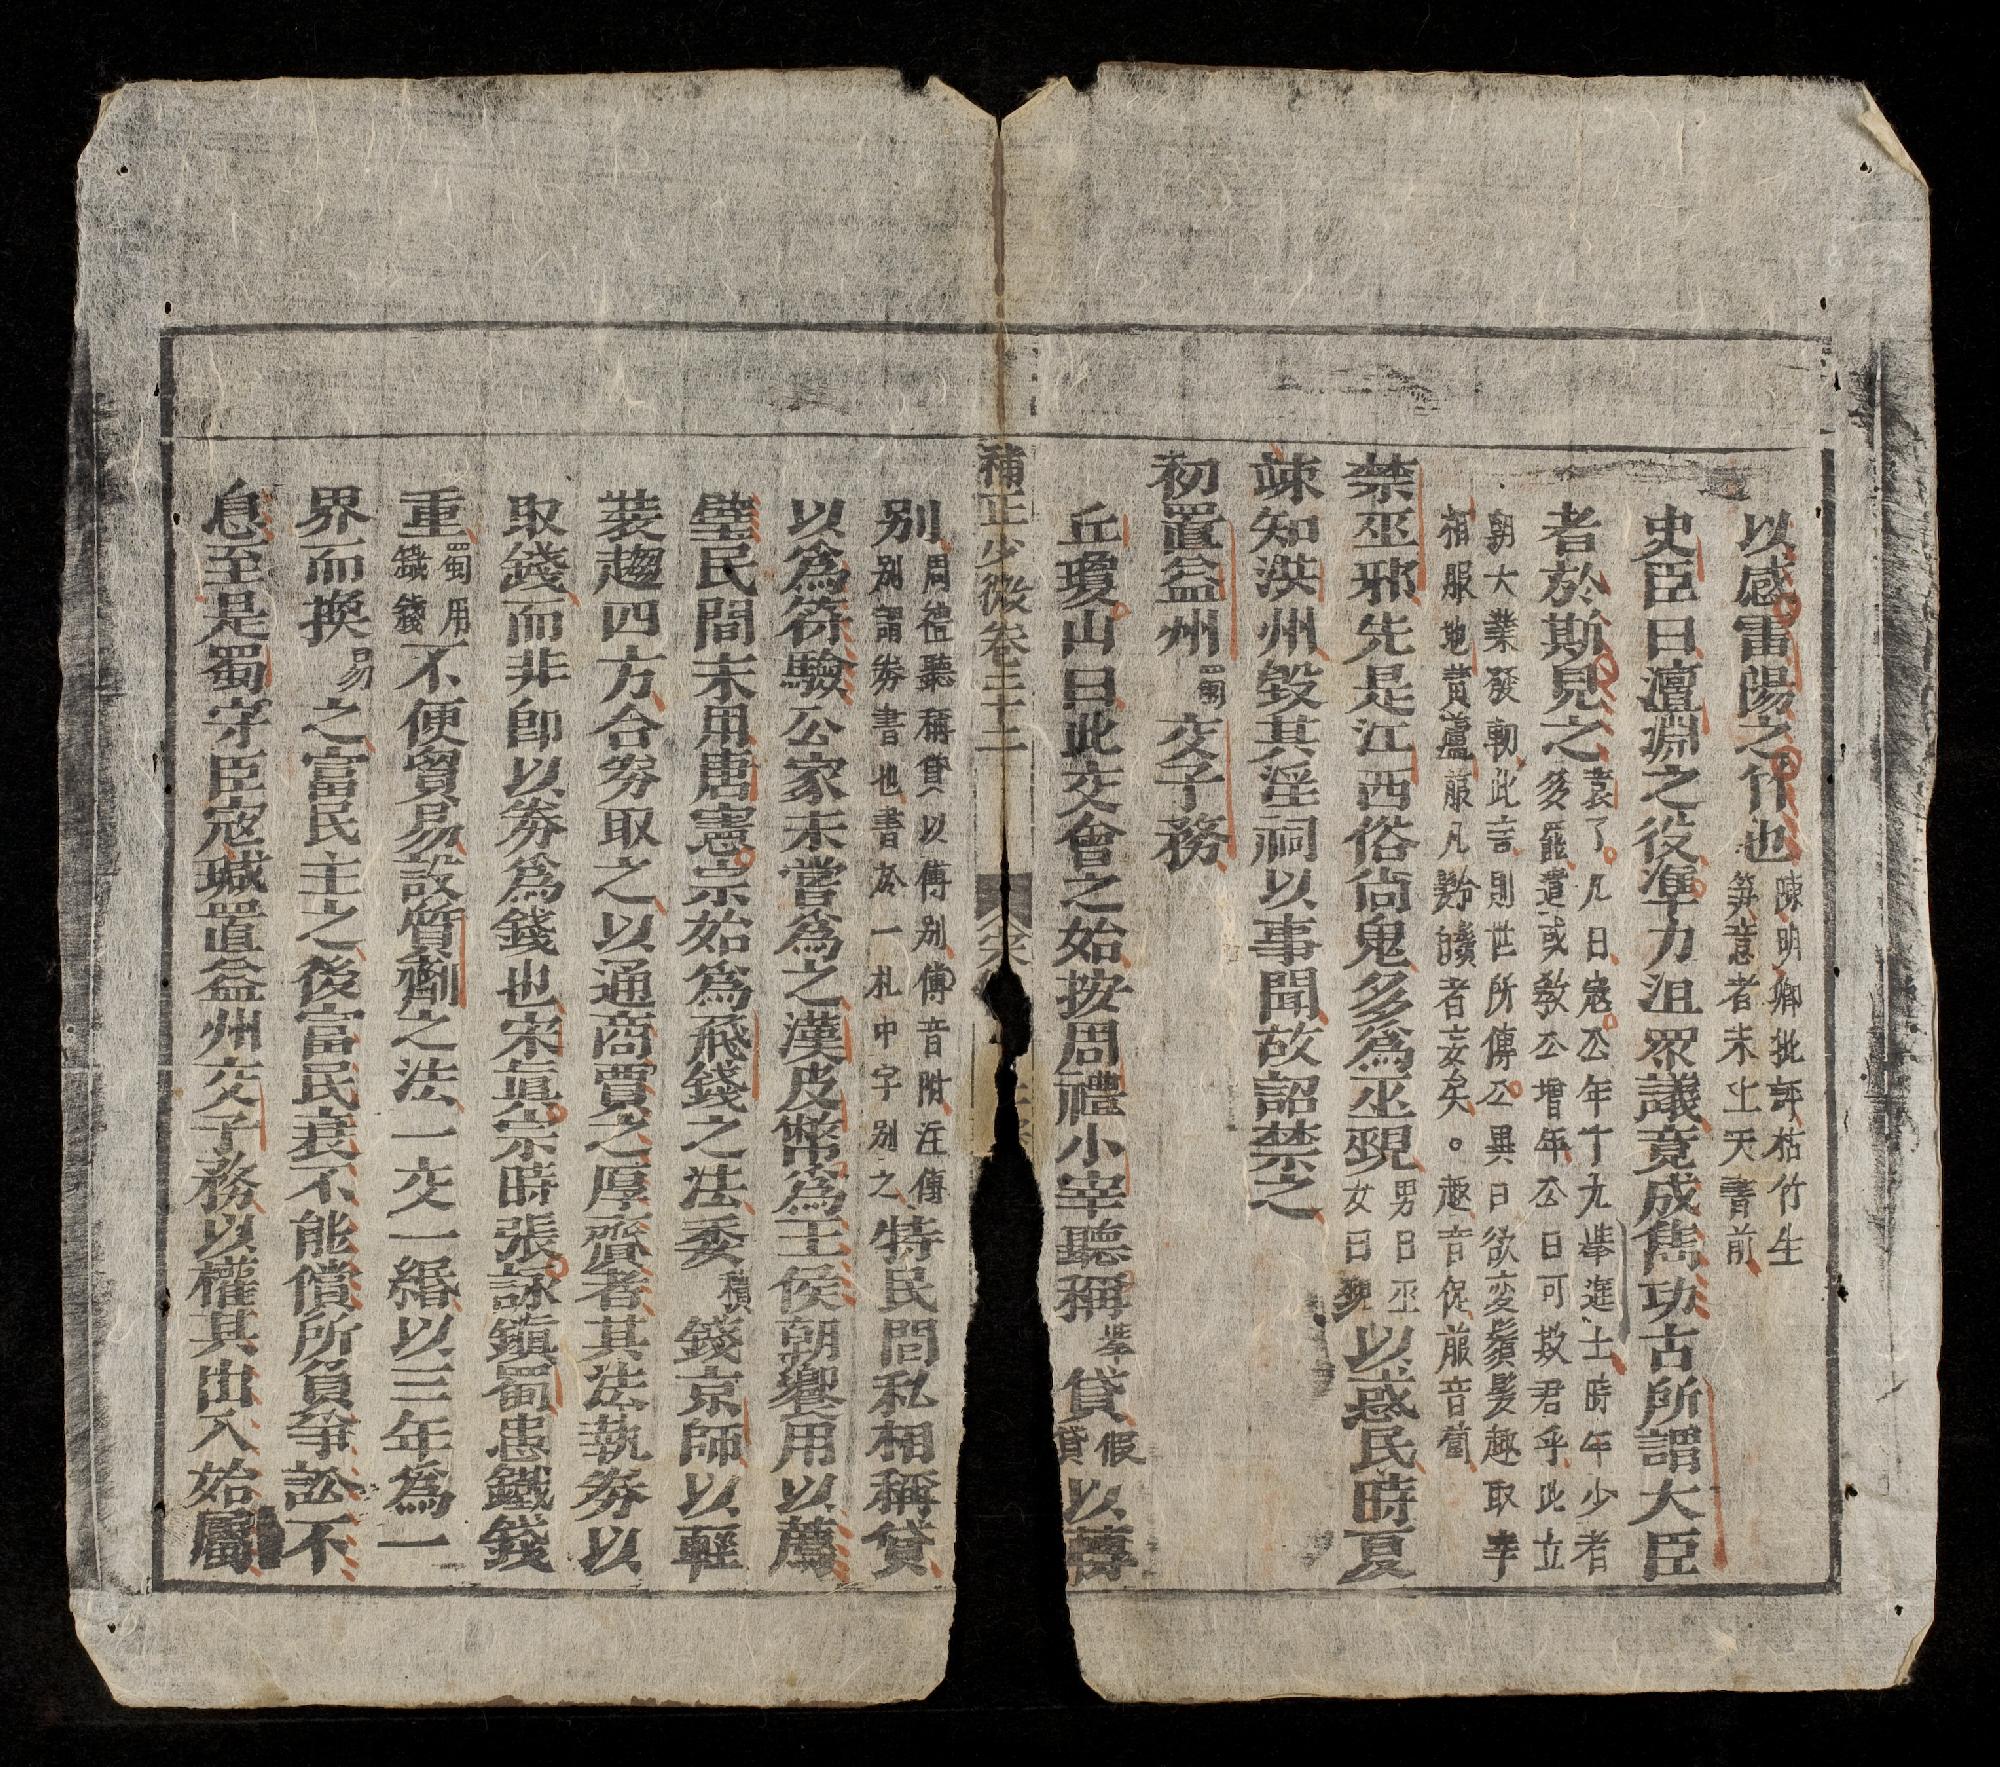 以感雷陽之竹也陳明卿批評枯竹生笋意者未上天書前
史臣曰澶淵之役準力沮眾議竟成雋功古所謂大臣
者於斯見之袁了凡曰寇公年十九舉進士時年少者多罷遣或教公增年公曰可欺君乎此立
朝大業發軔此言則世所傳公異日欲変鬚髮趣取宰
相服地黃蘆菔凡黲皤者妄矣。趣音促菔音蔔
禁巫邪先是江西俗尚鬼多爲巫覡男曰巫女曰覡以惑民時夏
竦知洪州毀其淫祠以事聞故詔禁之
初置益州蜀交子務
丘瓊山曰此交會之始按周禮小宰聽稱舉貸假貸以尊
補正少微卷三十二 宋
別周禮聽稱貸以傅別傅音附注傅別謂券書也書於一札中字別之特民間私相稱貸
以爲符驗公家未嘗爲之漢皮幣爲王侯朝饗用以薦
璧民間未用唐憲宗始爲飛錢之法委積錢京師以輕
裝趨四方合券取之以通商賈之厚齎者其法執券以
取錢而非卽以券爲錢也宋眞宗時張詠鎮蜀患鐵錢
重蜀用鐵錢不便貿易設質劑之法一交一緡以三年為一
界而換易之富民主之後富民衰不能償所負爭訟不
息至是蜀守臣寇瑊置益州交子務以權其出入始屬